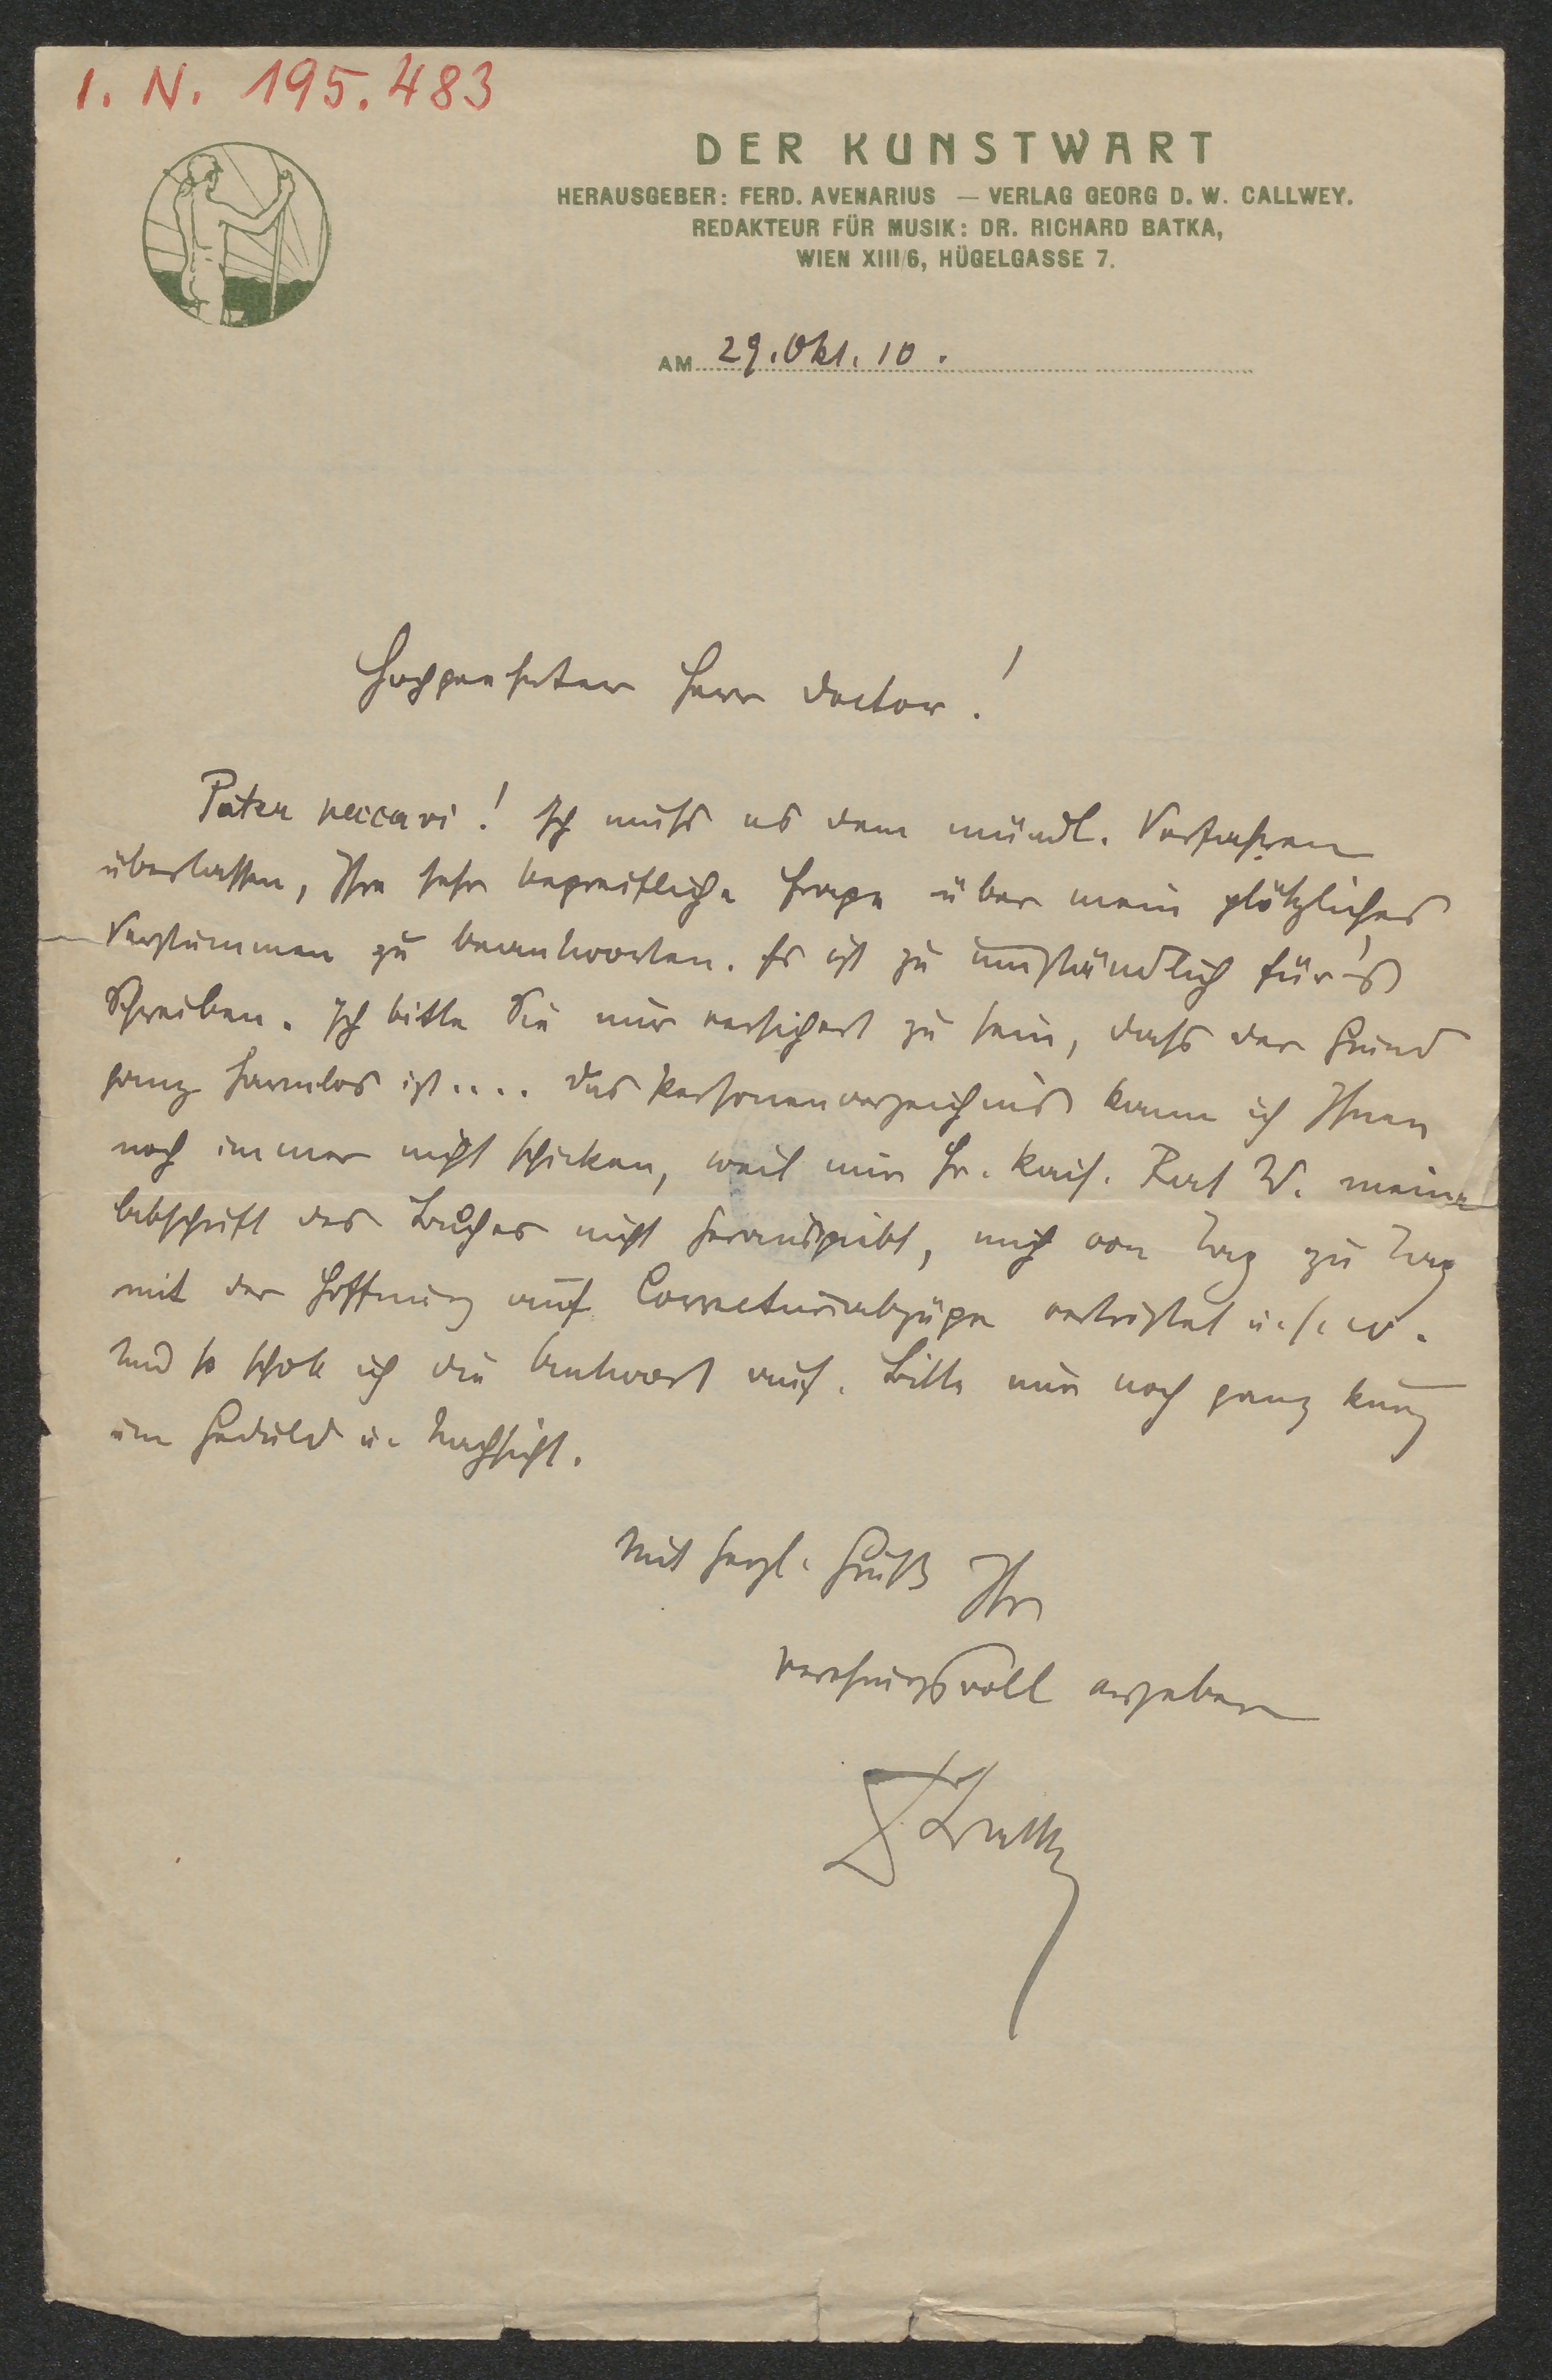 I. N. 195.483
DER KUNSTWART
HERAUSGEBER: FERD. AVENARIUS — VERLAG GEORG D. W. CALLWEY.
REDAKTEUR FÜR MUSIK: DR. RICHARD BATKA,
WIEN XIII/6, HÜGELGASSE 7.
AM 29. Okt. 10.
Hochgeehrter Herr Doctor!
Pater peccavi! Ich muss es dem mündl. Verfahren
überlassen, Ihre sehr begreifliche Frage über mein plötzliches
Verstummen zu beantworten. Es ist zu umständlich für's
Schreiben. Ich bitte Sie nur versichert zu sein, dass der Grund
ganz harmlos ist.... Das Personenverzeichnis kann ich Ihnen
noch immer nicht schicken, weil mir Hr. kais. Rat W. meine
Abschrift des Buches nicht herausgibt, mich von Tag zu Tag
mit der Hoffnung auf Correcturabzüge vertröstet u. s. w.
Und so schob ich die Antwort auf. Bitte nur noch ganz kurz
um Geduld u. Nachsicht.
Mit herzl. Gruß Ihr
verehrungsvoll ergebener
Batka